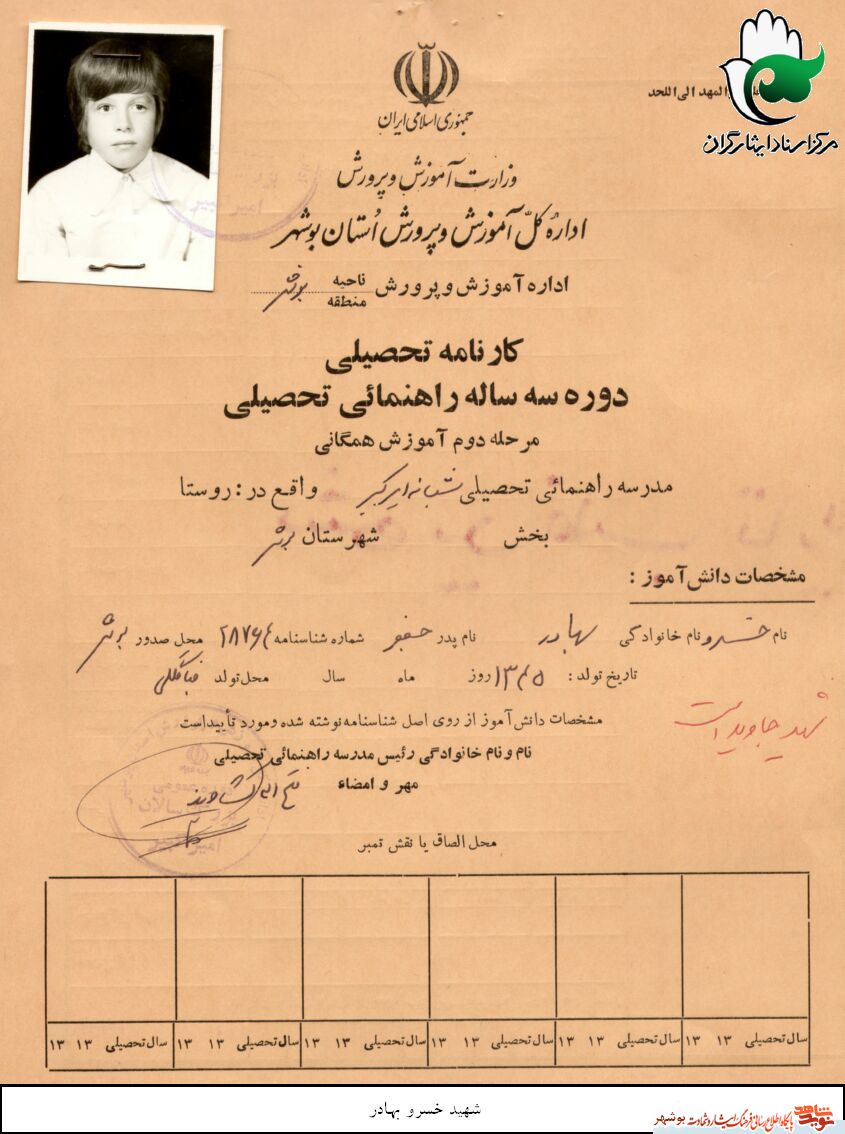 اطلبوا العلم من المهد الی اللحد
مرکز اسناد ایثارگران
جمهوری اسلامی ایران
وزارت آموزش و پرورش
اداره کل آموزش و پرورش استان بوشهر
اداره آموزش و پرورش ناحیه منطقه بوشهر
کارنامه تحصیلی
دوره سه ساله راهنمائی تحصیلی
مرحله دوم آموزش همگانی
مدرسه راهنمائی تحصیلی شبانه امیرکبیر واقع در : روستا
بخش شهرستان بوشهر
مشخصات دانش آموز :
نام خسرو نام خانوادگی بهادر نام پدر جعفر شماره شناسنامه محل صدور بوشهر
تاریخ تولد : ۱۳۴۵ روز ماه سال محل تولد
مشخصات دانش آموز از روی اصل شناسنامه نوشته شده و مورد تأیید است
شهید جاوید است
نام و نام خانوادگی رئیس مدرسه راهنمائی تحصیلی
مهر و امضاء
محل الصاق یا نقش تمبر
سال تحصیلی ۱۳ ۱۳ سال تحصیلی ۱۳ ۱۳ سال تحصیلی ۱۳ ۱۳ سال تحصیلی ۱۳ ۱۳ سال تحصیلی ۱۳ ۱۳ سال تحصیلی ۱۳ ۱۳
شهید خسرو بهادر
نوید شاهد پایگاه اطلاع رسانی فرهنگ ایثار و شهادت بوشهر